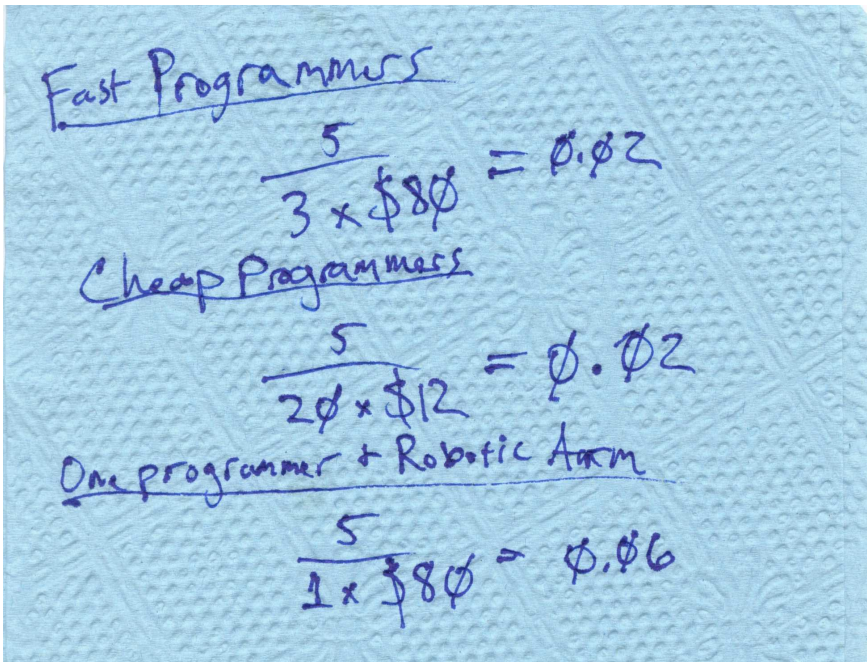 Fast Programmers
5
3 x $80 = 0.02
Cheap Programmers
5
20 x $12 = 0.02
One programmer + Robotic Arm
5
1 x $80 = 0.06